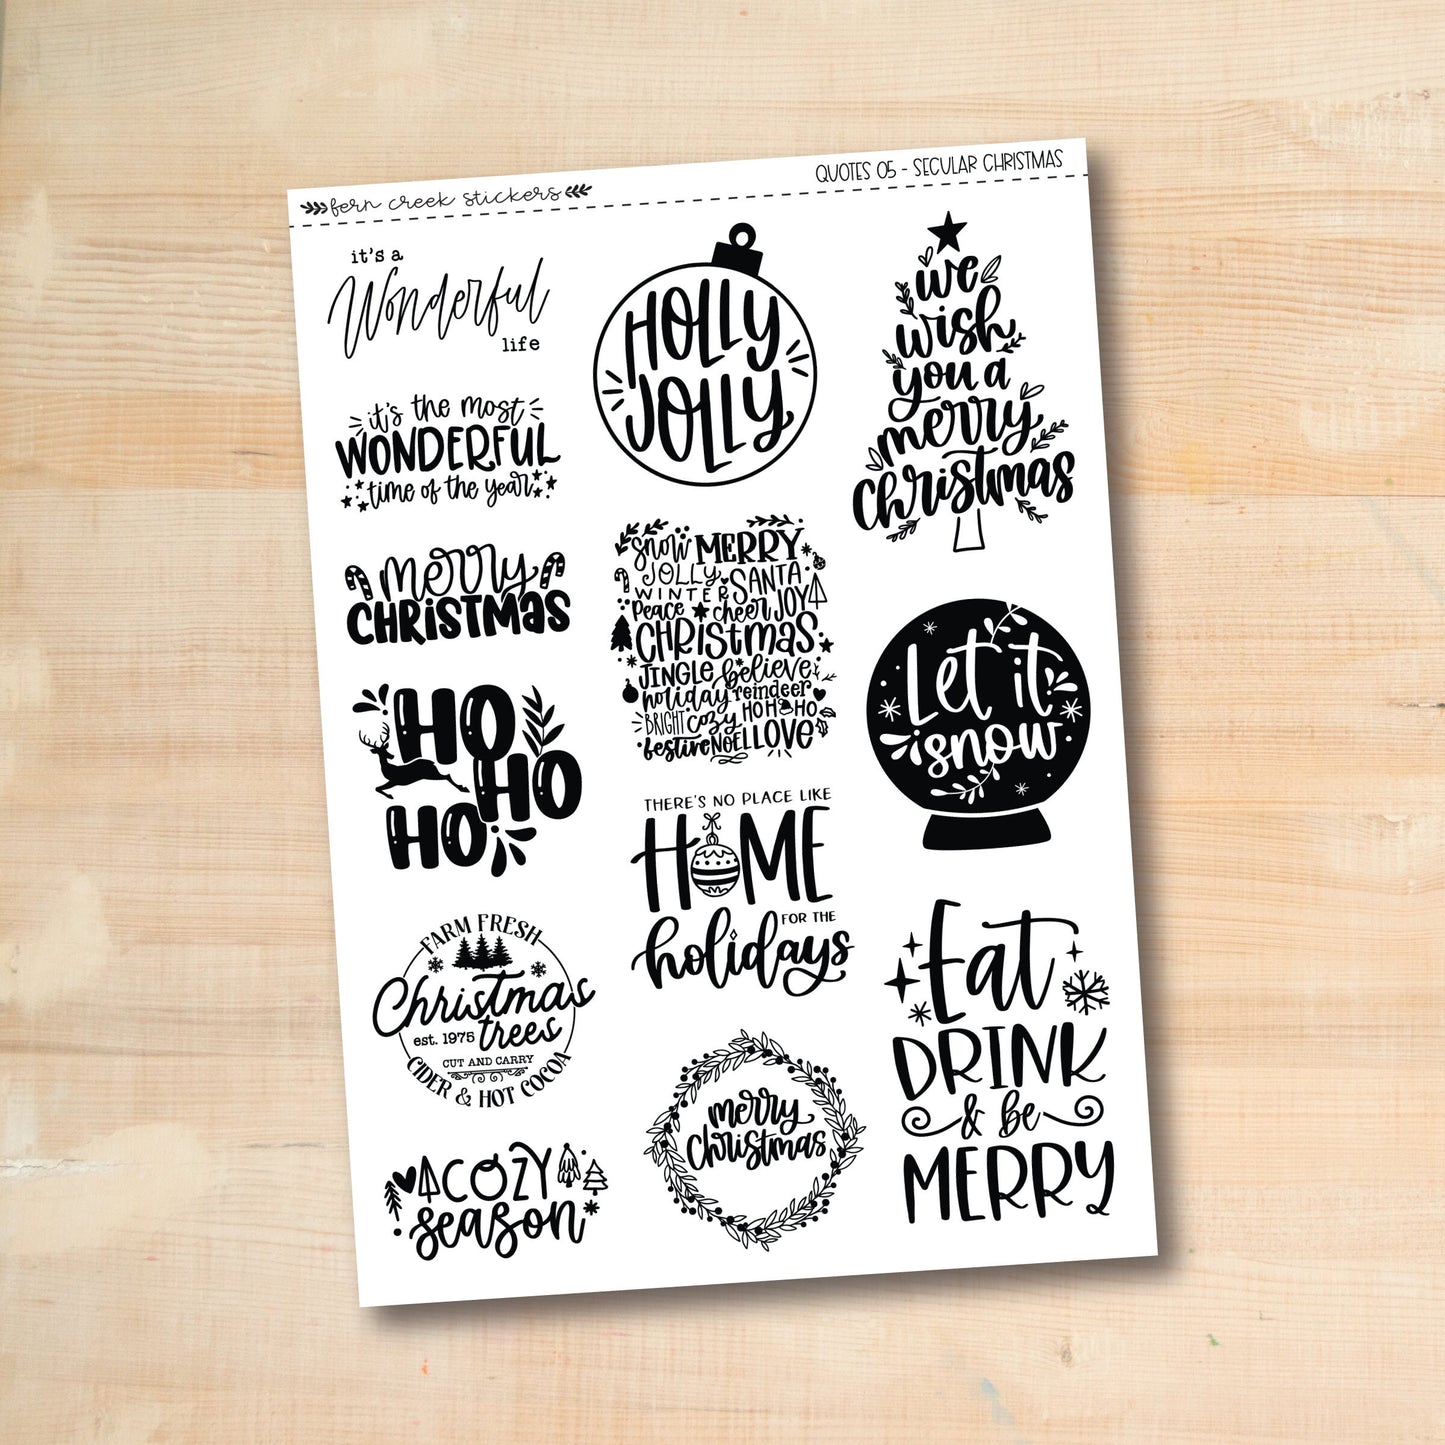 fern creek stickers
QUOTES 05 - SECULAR CHRISTMAS
it's a
Wonderful
life
it's the most
WONDERFUL
time of the year
merry
CHRISTMAS
HO
HO
HO
FARM FRESH
Christmas
est. 1975 trees
CUT AND CARRY
CIDER & HOT COCOA
COZY
season
HOLLY
JOLLY
snow MERRY
JOLLY SANTA
WINTER
Peace cheer JOY
CHRISTMAS
JINGLE believe
holiday reindeer
BRIGHT cozy HO HO HO
festive NOEL LOVE
THERE'S NO PLACE LIKE
HOME
FOR THE
holidays
merry
christmas
we
wish
you a
merry
christmas
Let it
snow
Eat
DRINK
& be
MERRY